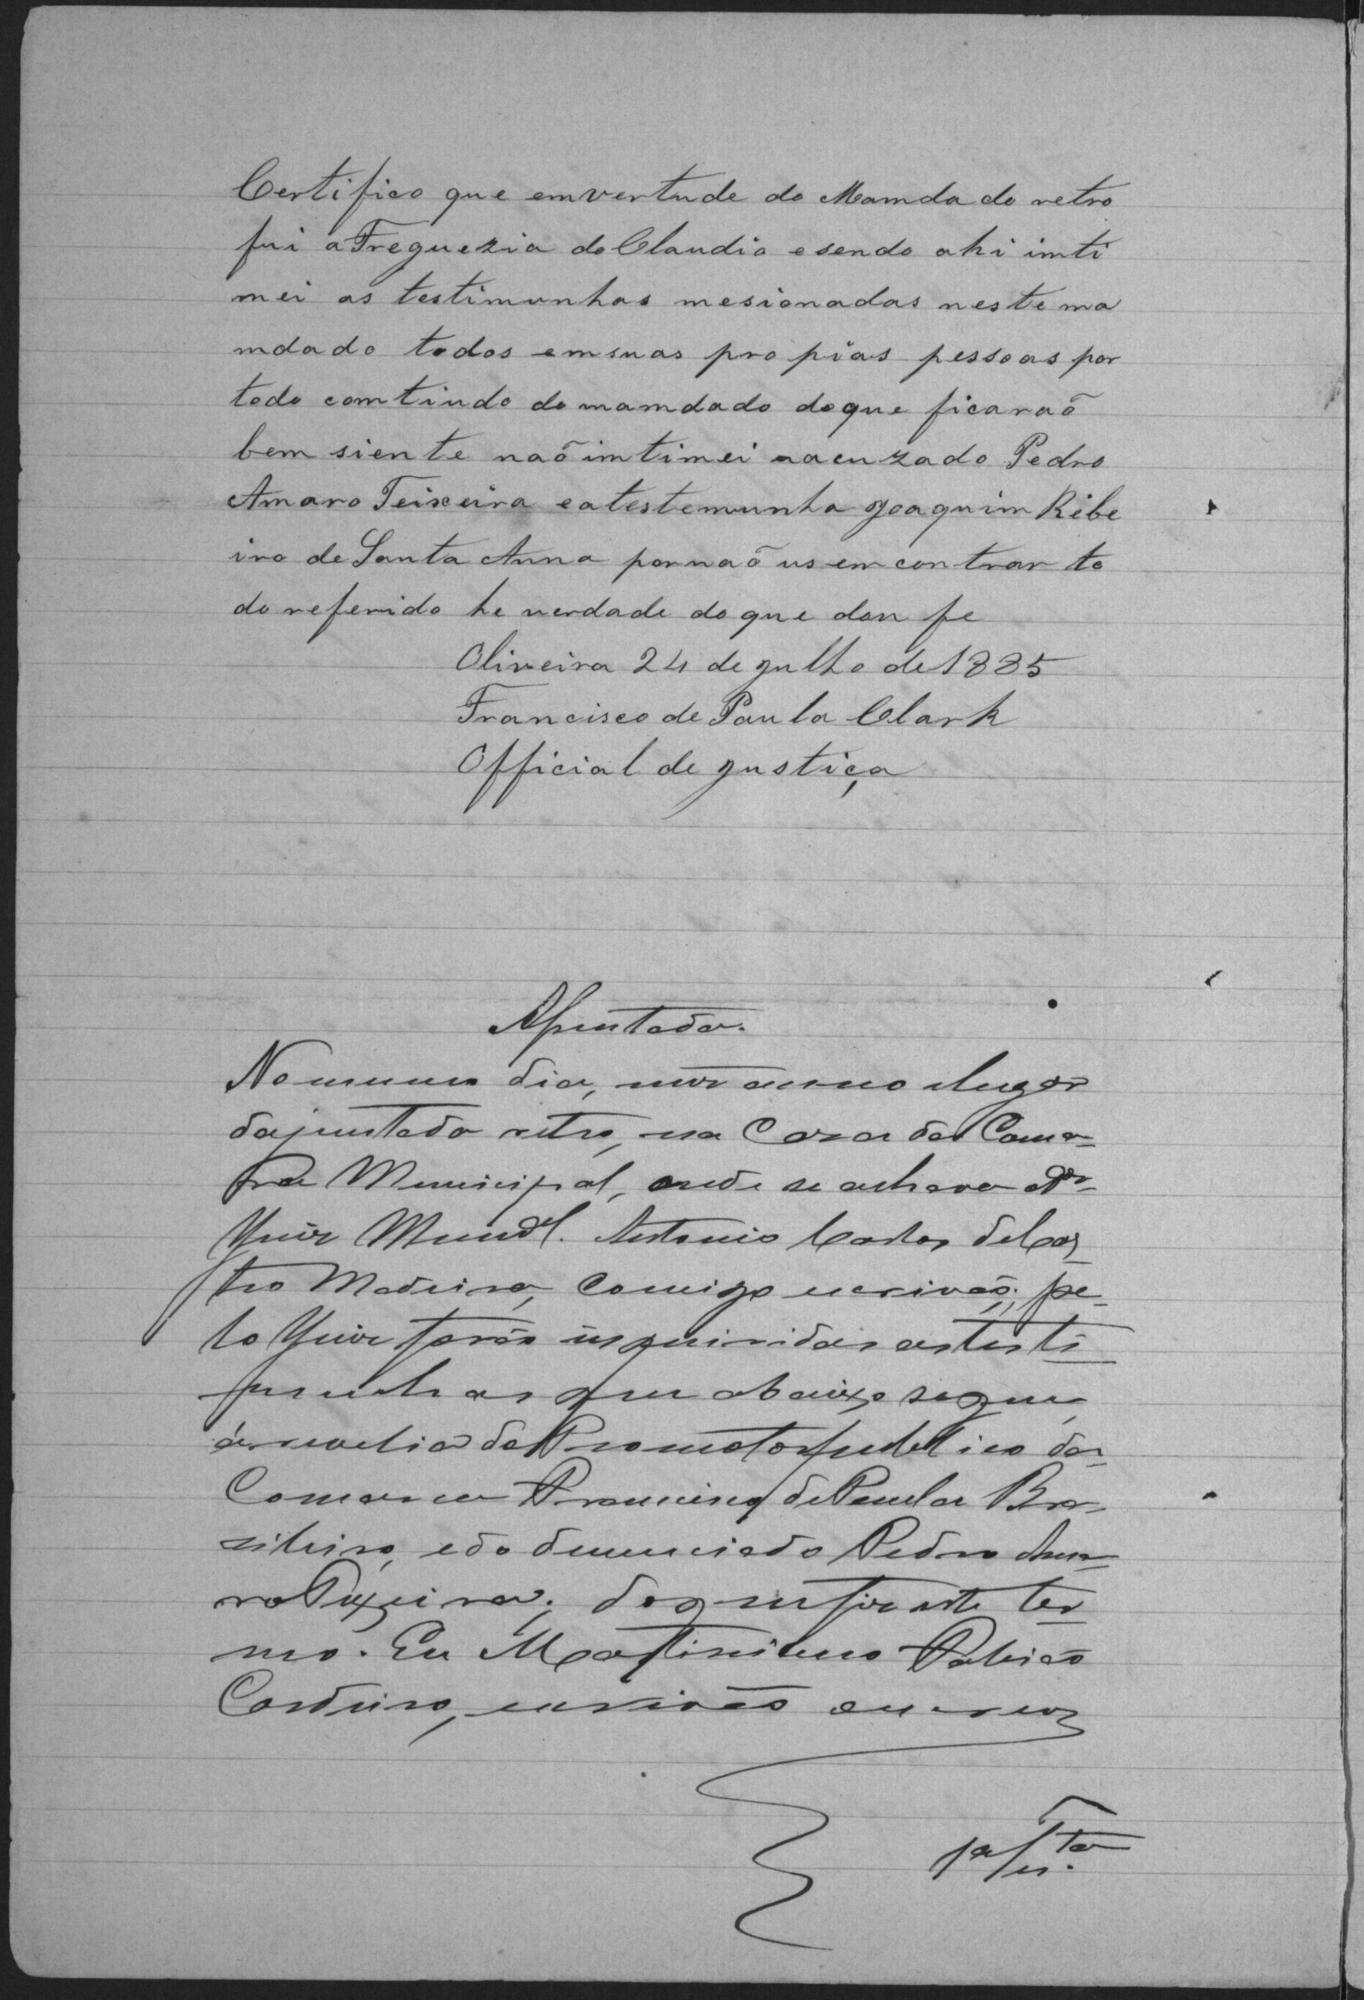 Certifico que emvertude do Mamdado retro
fui a Freguezia do Claudio e sendo ahi imti
mei as testimunhas mesionadas neste ma
mdado todos emsuas propias pessoas por
todo comtiudo do mamdado doque ficaraõ
bem siente naõ imtimei aacuzado Pedro
Amaro Teixeira eatestemunha Joaquim Ribe
iro de Santa Anna pornaõ us emcontrar to
do referido he verdade do que dou fe
Oliveira 24 de julho de 1885
Francisco de Paula Clark
Official de justiça
Assentada.
No mesmo dia, mez anno e lugar
da juntada retro, na Caza da Cama-
ra Municipal, onde se achava o Dr
Juiz Munal. Antonio Carlos de Cas
tro Madeira, comigo escrivão, pe-
lo Juiz forão inquiridas as teste
munhas que abaixo seguem,
á revelia do Promotor publico da
Comarca Francisco de Paula Bra-
zileiro, e do denunciado Pedro Ama-
ro Teixeira; do que fiz este ter
mo. Eu Martiniano
Cordeiro, escrivão escrevi
1ª Testa.